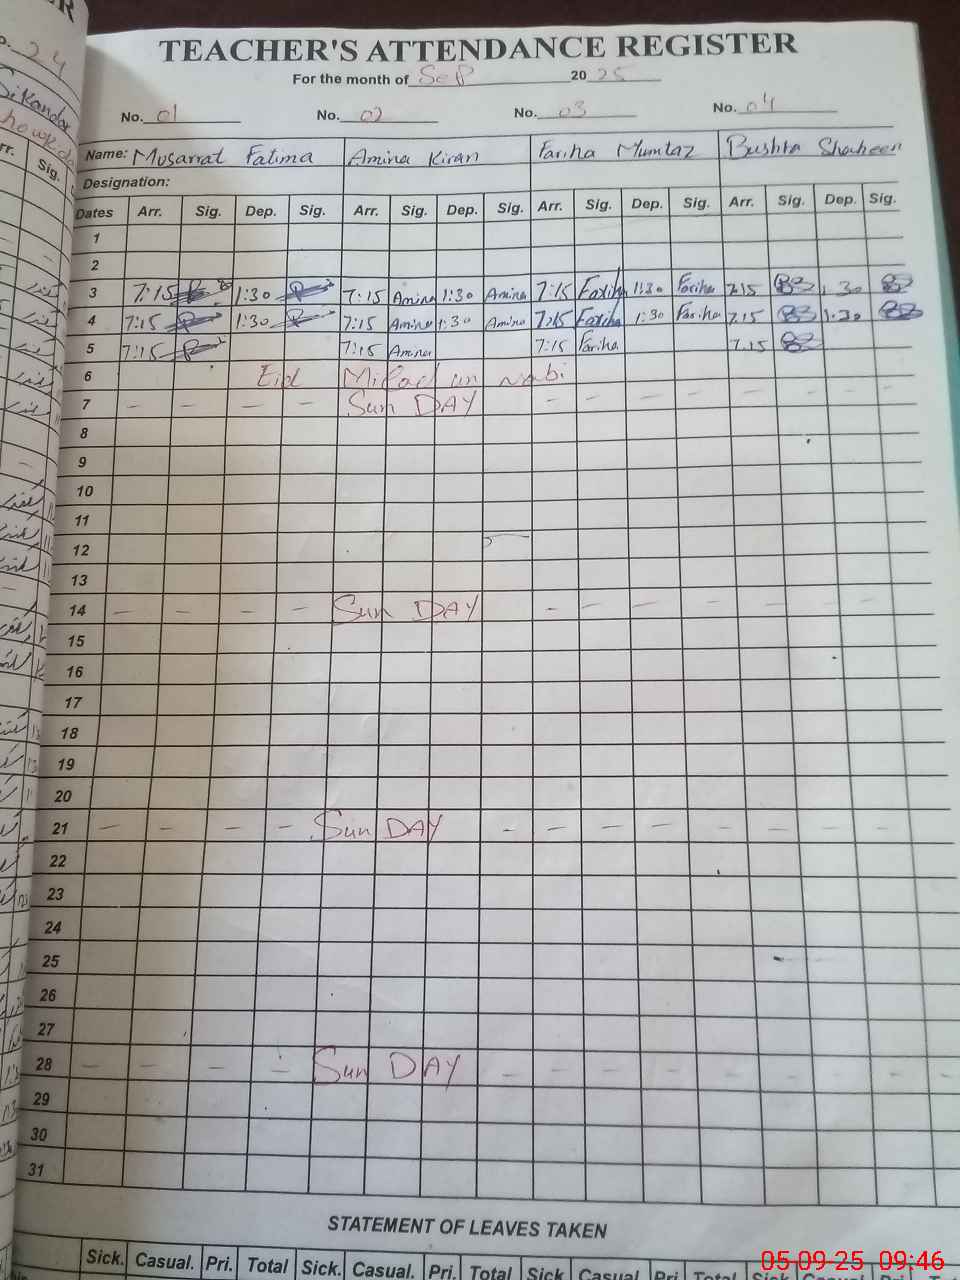 TEACHER'S ATTENDANCE REGISTER
For the month of Sep 2025
No. 01 No. 02 No. 03 No. 04
Name: Musarrat Fatima Amina Kiran Fariha Mumtaz Bushra Shaheen
Designation:
Dates Arr. Sig. Dep. Sig. Arr. Sig. Dep. Sig. Arr. Sig. Dep. Sig. Arr. Sig. Dep. Sig.
1
2
3 7:15 1:30 7:15 Amina 1:30 Amina 7:15 Fariha 1:30 Fariha 7:15 1:30
4 7:15 1:30 7:15 Amina 1:30 Amina 7:15 Fariha 1:30 Fariha 7:15 1:30
5 7:15 7:15 Amina 7:15 Fariha 7:15
6 Eid Milad un nabi
7 - - - - Sun DAY - - - - - - - -
8
9
10
11
12
13
14 - - - - Sun DAY - - - - - - - -
15
16
17
18
19
20
21 - - - - Sun DAY - - - - - - - - -
22
23
24
25
26
27
28 - - - - Sun DAY - - - - - - - - -
29
30
31
STATEMENT OF LEAVES TAKEN
Sick. Casual. Pri. Total Sick. Casual. Pri. Total Sick Casual. Pri. Total Sick. Casual. Pri. Total
05-09-25 09:46